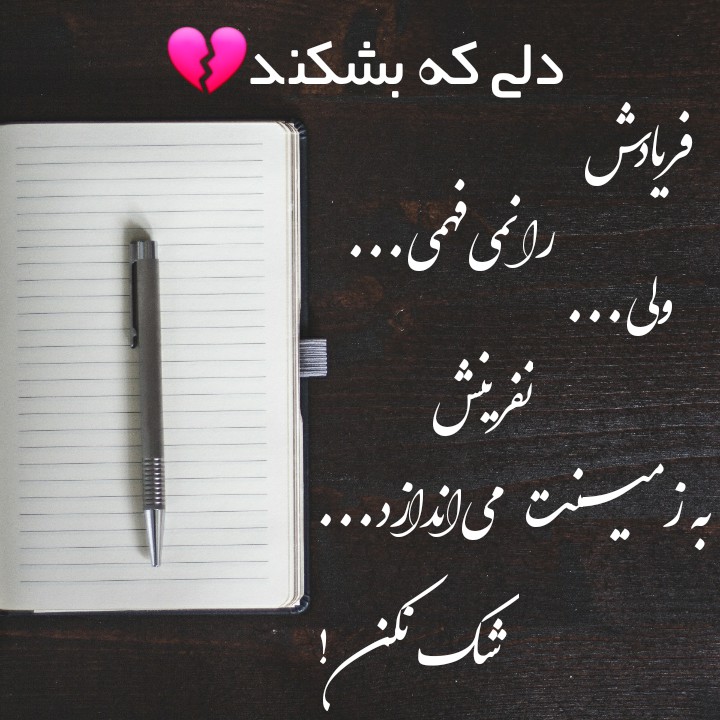 دلی که بشکند💔
فریادش
را نمی فهمی...
ولی...
نفرینش
به زمینت می اندازد...
شک نکن!